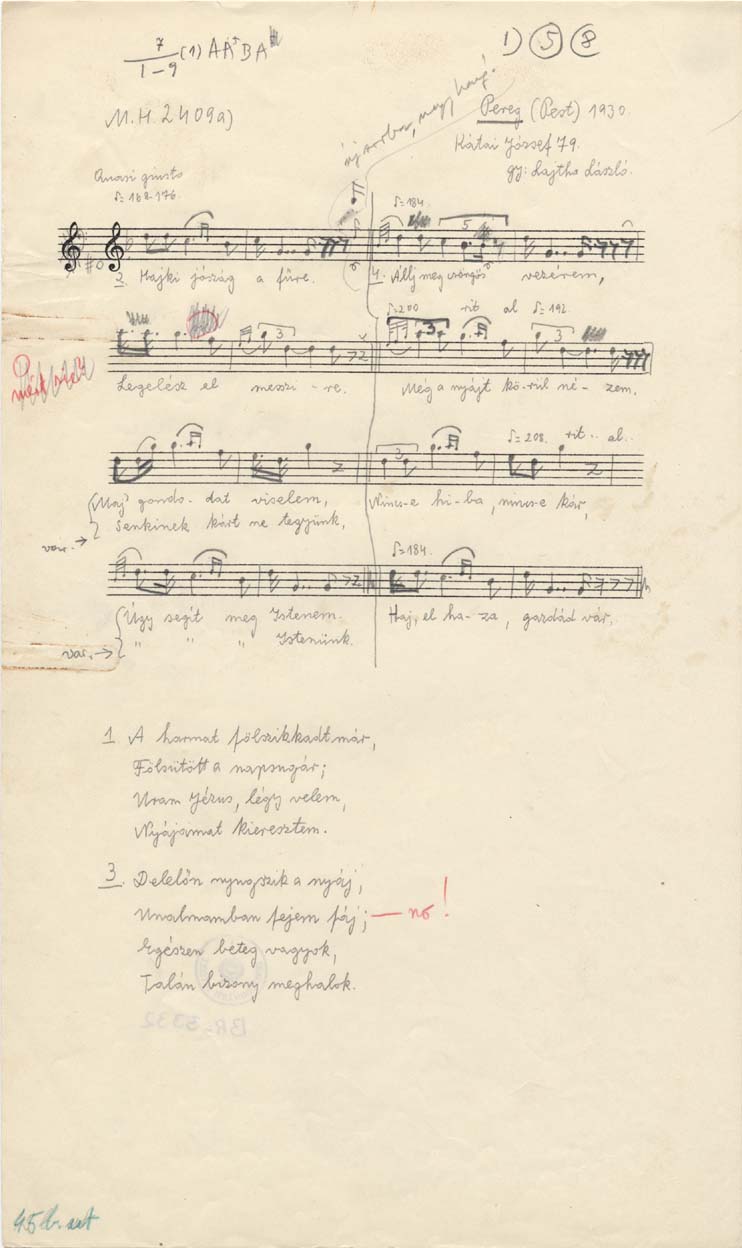 7 (1) A A⁺ B A
1–9
1) 5 8
M.H. 2409a)
Pereg (Pest) 1930.
Kátai József 79.
gy: Lajtha László.
Quasi giusto
♪= 168-176.
♪=184.
5
2. Hajki jószág a fűre.
4. Állj meg csöngős vezérem,
♪=200 rit al ♪=192.
3 3 3
Legelész el messzi-re.
Még a nyájt kö-rül né-zem.
♪=208. rit.. al..
3
Maj' gondo-dat viselem,
Nincs-e hi-ba, nincs-e kár,
Senkinek kárt ne tegyünk,
var. →
♪=184.
Úgy segít meg Istenem.
Haj, el ha-za, gazdád vár.
" " " Istenünk.
var. →
1. A harmat fölszikkadt már,
Fölsütött a napsugár;
Uram Jézus, légy velem,
Nyájamat kieresztem.
3. Delelőn nyugszik a nyáj,
Unalmamban fejem fáj; — nó!
Egészen beteg vagyok,
Talán bizony meghalok.
BR-5332